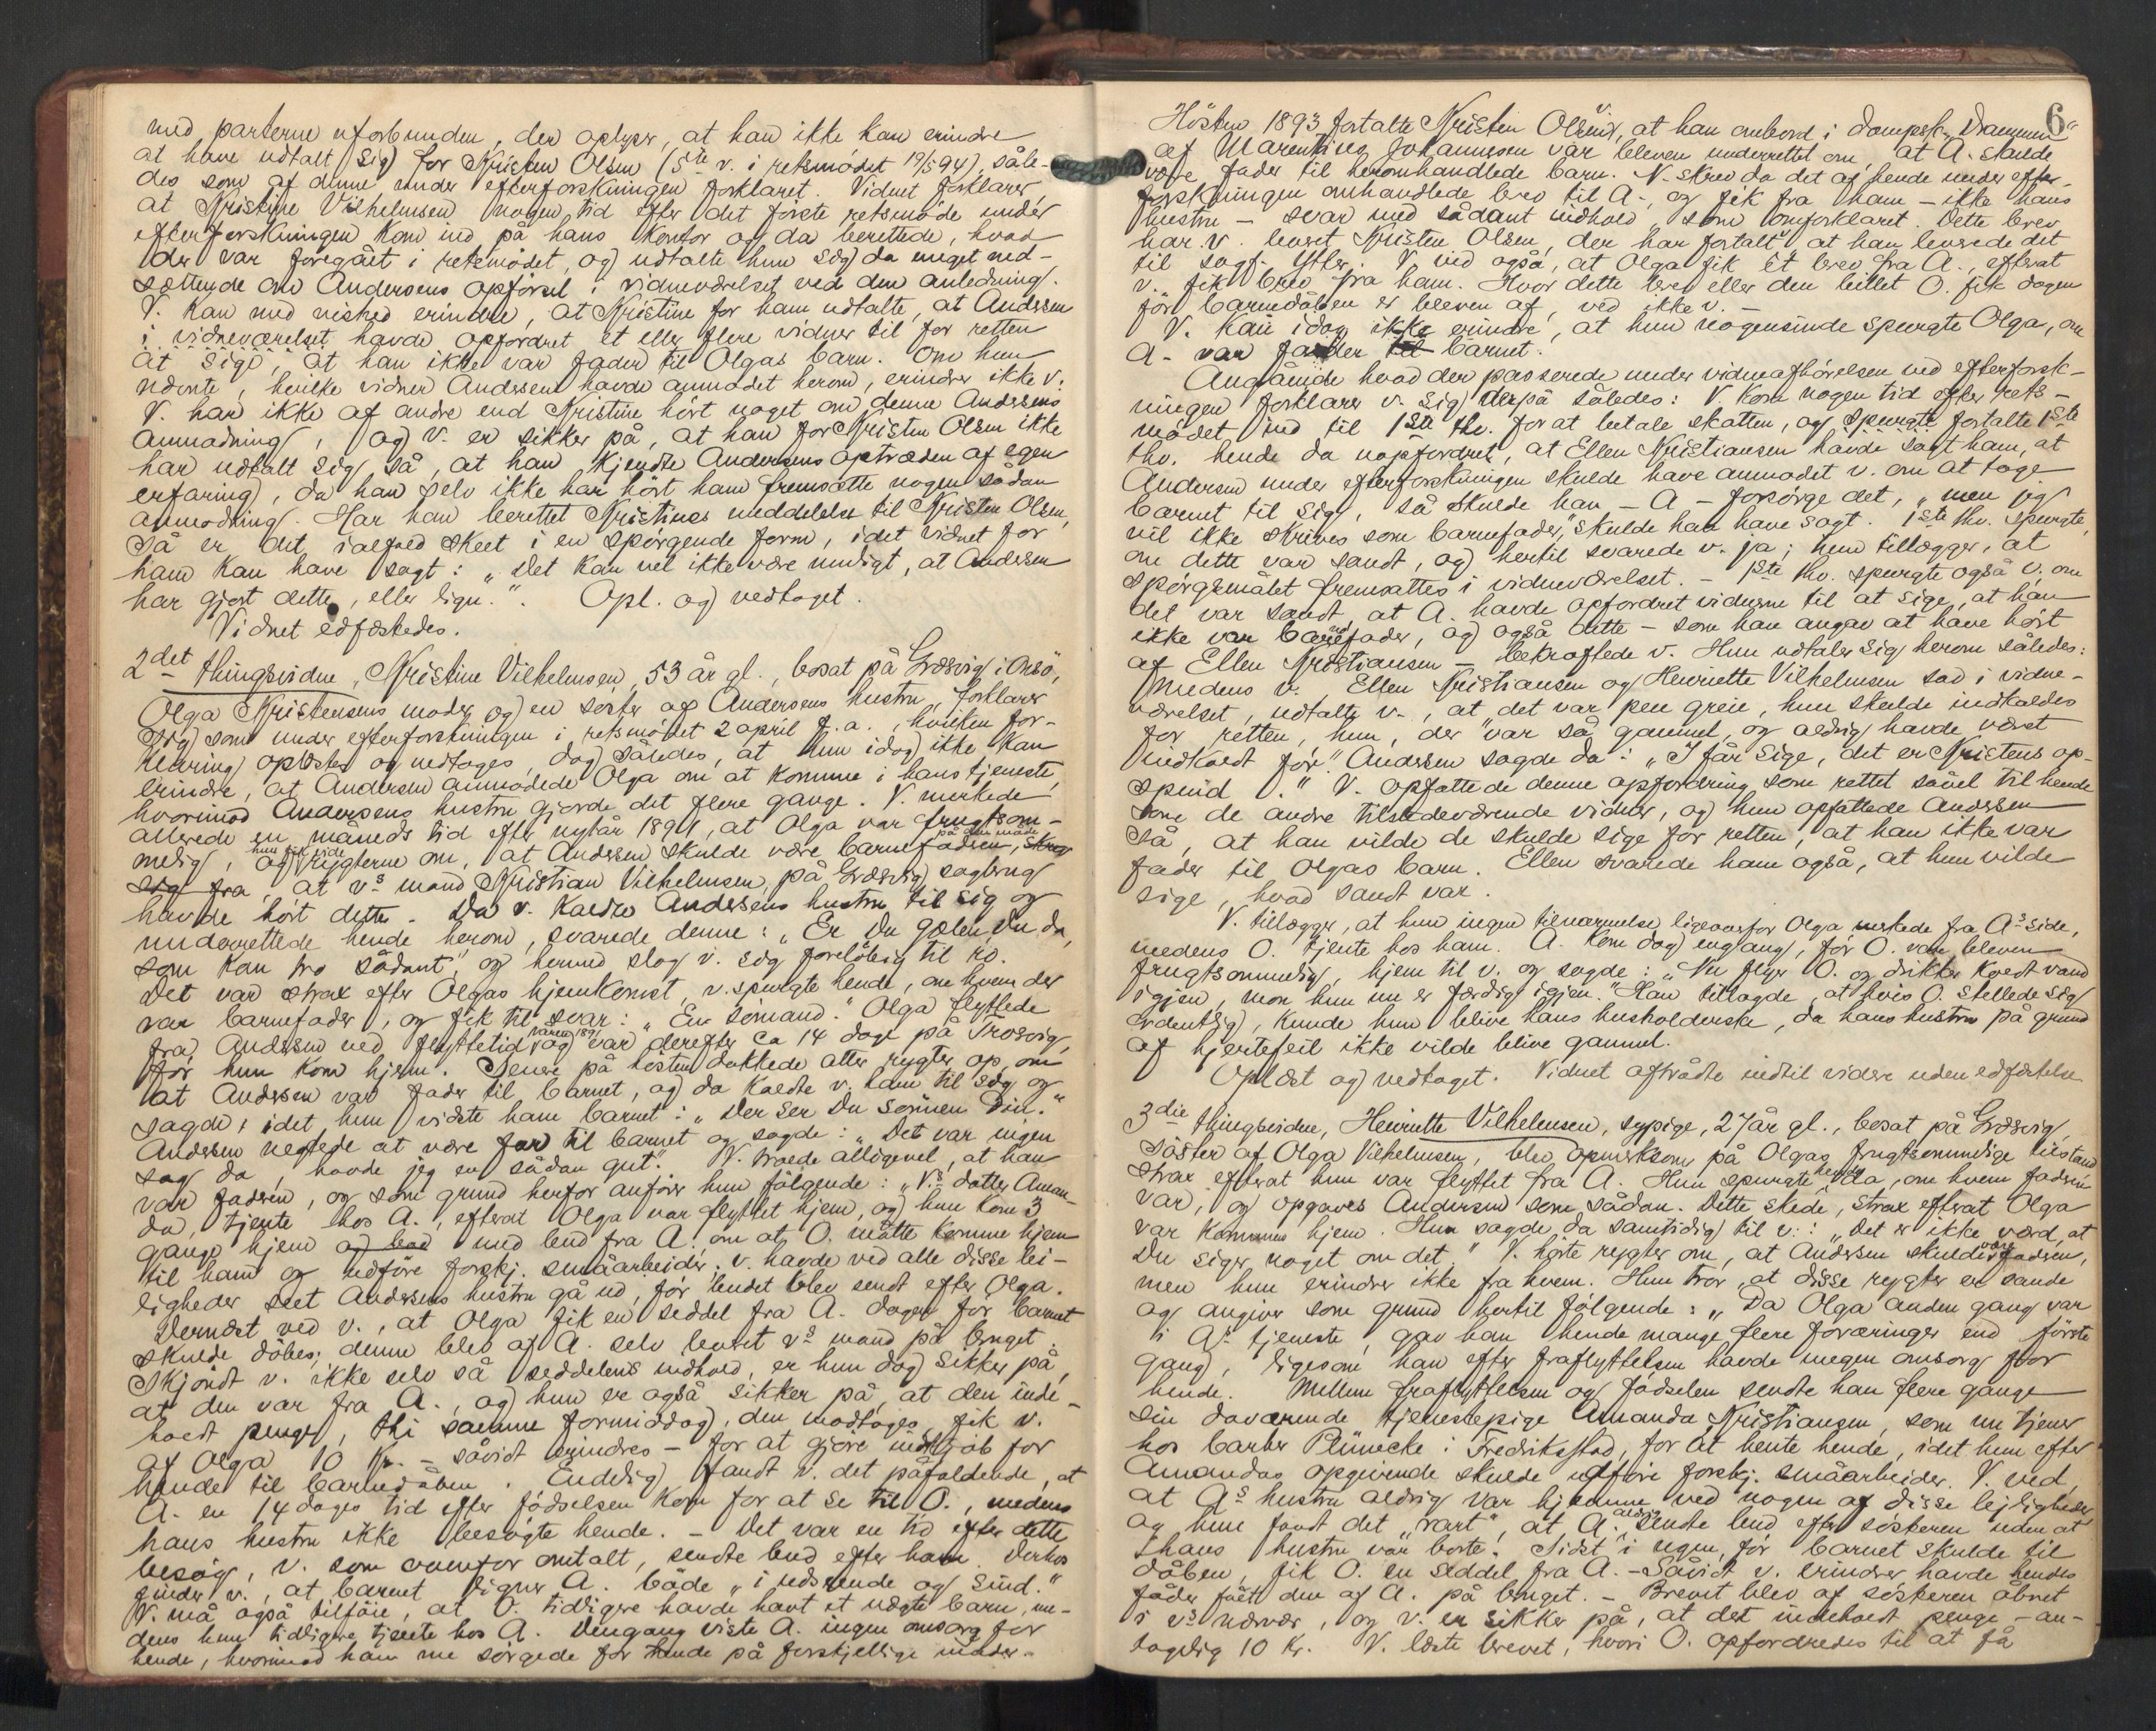 med parterne uforbunden, der oplyser, at han ikke kan erindre
at have udtalt sig for Kristen Olsen (5te v. i retsmødet 19/5 94), såle-
des som af denne under efterforskningen forklaret. Vidnet forklarer
at Kristine Vilhelmsen nogen tid efter det første retsmøde under
efterforskningen kom ind på hans kontor og da berettede, hvad
der var foregået i retsmødet, og udtalte hun sig da meget ned-
sættende om Andersens opførsel i vidneværelset ved den anledning.
V. kan med vished erindre, at Kristine for ham udtalte, at Andersen
i vidneværelset havde opfordret et eller flere vidner til for retten
at sige, at han ikke var fader til Olgas barn. Om hun
nævnte, hvilke vidner Andersen havde anmodet herom, erindrer ikke v.
V. har ikke af andre end Kristine hört noget om denne Andersens
anmodning, og v. er sikker på, at han for Kristen Olsen ikke
har udtalt sig så, at han kjendte Andersens optræden af egen
erfaring, da han selv ikke har hört ham fremsætte nogen sådan
anmodning. Har han berettet Kristines meddelelse til Kristen Olsen,
så er det ialfald skeet i en spørgende form, idet vidnet for
ham kan have sagt: „Det kan vel ikke være muligt, at Andersen
har gjort dette, eller lign.“. Opl. og vedtaget.
Vidnet edfæstedes.
2det thingsvidne, Kristine Vilhelmsen, 53 år gl., bosat på Græsvig i Onsø,
Olga Kristensens moder og en søster af Andersens hustru, forklarer
sig som under efterforskningen i retsmødet 2 april f.a., hvilken for-
klaring oplæstes og vedtoges, dog således, at hun idag ikke kan
erindre, at Andersen anmodede Olga om at komme i hans tjeneste,
hvorimod Andersens hustru gjorde det flere gange. V. merkede
allerede en måneds tid efter nytår 1891, at Olga var frugtsom-
melig, og hun fik vide rygterne om, at Andersen skulde være barnefaderen, på den måde skrev
sig fra, at v.s mand Kristian Vilhelmsen, på Græsvig sagbrug
havde hört dette. Da v. kaldte Andersens hustru til sig og
underrettede hende herom, svarede denne: „Er du gælen, du da,
som kan tro sådant“, og hermed slog v. sig foreløbig til ro.
Det var strax efter Olgas hjemkomst, v. spurgte hende, om hvem der
var barnefader, og fik til svar: „En sömand.“ Olga flyttede
fra Andersen ved flyttetid våren 1891 og var derefter ca 14 dage på Trosvig,
för hun kom hjem. Senere på hösten dukkede atter rygter op om
at Andersen var fader til barnet, og da kaldte v. ham til sig og
sagde, idet hun viste ham barnet: „Der ser du sönnen din.“
Andersen negtede at være far til barnet og sagde: „Det var ingen
sag da, havde jeg en sådan gut“. V. troede alligevel, at han
var faderen, og som grund herfor anfører hun følgende: „V.s datter Aman-
da, tjente hos A., efterat Olga var flyttet hjem, og hun kom 3
gange hjem og bad med bud fra A. om at O. måtte komme hjem
til ham og udføre forskj. småarbeider. v. havde ved alle disse lei-
ligheder seet Andersens hustru gå ud, før budet blev sendt efter Olga.
Dernæst ved v., at Olga fik en seddel fra A. dagen før barnet
skulde döbes; denne blev af A. selv leveret v.s mand på bruget.
Skjöndt v. ikke selv så seddelens indhold, er hun dog sikker på,
at den var fra A., og hun er også sikker på, at den inde-
holdt penge, thi samme formiddag, den modtoges, fik v.
af Olga 10 Kr. – såvidt erindres – for at gjöre indkjöb for
hende til barnedåben. Endelig fandt v. det påfaldende, at
A. en 14 dages tid efter fødselsen kom for at se til O., medens
hans hustru ikke besøgte hende. – Det var en tid efter dette
besøg, v. som ovenfor omtalt, sendte bud efter ham. Derhos
finder v., at barnet ligner A. både „i udseende og sind.“
V. må også tilföie, at O. tidligere havde havt et uægte barn, me-
dens hun tidligere tjente hos A. Dengang viste A. ingen omsorg for
hende, hvorimod han nu sörgede for hende på forskjellige måder.
6
Hösten 1893 fortalte Kristen Olsen v., at han ombord i dampsk. „Drammen“
af Marentine Johannesen var bleven underrettet om, at A. skulde
være fader til heromhandlede barn. V. skrev da det af hende under efter-
forskningen omhandlede brev til A., og fik fra ham – ikke hans
hustru – svar med sådant indhold, som omforklaret. Dette brev
har v. leveret Kristen Olsen, der har fortalt v. at han leverede det
til sagf. . V. ved også, at Olga fik et brev fra A., efterat
v. fik brev fra ham. Hvor dette brev eller den billet O. fik dagen
för barnedåben er bleven af, ved ikke v. –
V. kan idag ikke erindre, at hun nogensinde spurgte Olga, om
A. var fader til barnet.
Angående hvad der passerede under vidneafhörelsen ved efterforsk-
ningen forklarer v. sig derpå således: V. kom nogen tid efter rets-
mödet ind til 1ste thv. for at betale skatten, og spurgte fortalte 1ste
thv. hende da uopfordret, at Ellen Kristiansen havde sagt ham, at
Andersen under efterforskningen skulde have anmodet v. om at tage
barnet til sig, så skulde han – A – forsörge det, „men jeg
vil ikke skrives som barnefader,“ skulde han have sagt. 1ste thv. spurgte,
om dette var sandt, og hertil svarede v. ja; hun tillægger, at
spörgsmålet fremsattes i vidneværelset. – 1ste thv. spurgte også v. om
det var sandt, at A. havde opfordret vidnerne til at sige, at han
ikke var barnefader, og også dette – som han angav at have hört
af Ellen Kristiansen – bekræftede v. Hun udtaler sig herom således:
Medens v., Ellen Kristiansen og Henriette Vilhelmsen sad i vidne-
værelset, udtalte v., at det var pen greie, hun skulde indkaldes
for retten, hun, der „var så gammel, og aldrig havde været
indkaldt för.“ Andersen sagde da: „I får sige, det er Kristens op-
spind.“ V. opfattede denne opfordring som rettet såvel til hende
som de andre tilstedeværende vidner, og hun opfattede Andersen
så, at han vilde de skulde sige for retten, at han ikke var
fader til Olgas barn. Ellen svarede ham også, at hun vilde
sige, hvad sandt var.
V. tillægger, at hun ingen tilnærmelse ligeoverfor Olga merkede fra A.s side,
medens O. tjente hos ham. A. kom dog engang, för O. var bleven
frugtsommelig, hjem til v. og sagde: „Nu flyr O. og drikker koldt vand
igjen, mon hun nu er færdig igjen.“ Han tillagde, at hvis O. stellede sig
ordentlig, kunde hun blive hans husholderske, da hans hustru på grund
af hjertefeil ikke vilde blive gammel.
Oplæst og vedtaget. Vidnet aftrådte indtil videre uden edfæstelse.
3die thingsvidne, Henriette Vilhelmsen, sypige, 27 år gl., bosat på Græsvig,
söster af Olga Vilhelmsen, blev opmerksom på Olgas frugtsommelige tilstand
strax efterat hun var flyttet fra A. Hun spurgte hende da, om hvem faderen
var, og opgaves Andersen som sådan. Dette skede, strax efterat Olga
var kommen hjem. Hun sagde da samtidig til v.: „Det er ikke værd, at
du siger noget om det.“ V. hörte rygter om, at Andersen skulde være faderen,
men hun erindrer ikke fra hvem. Hun tror, at disse rygter er sande
og angiver som grund hertil følgende: „Da Olga anden gang var
i A.s tjeneste, gav han hende mange flere foræringer end förste
gang, ligesom han efter fraflyttelsen havde megen omsorg for
hende. Mellem fraflyttelsen og födselen sendte han flere gange
sin daværende tjenestepige Amanda Kristiansen, som nu tjener
hos barber Plünecke i Fredriksstad, for at hente hende, idet hun efter
Amandas opgivende skulde udföre forskj. småarbeider. V. ved,
at A.s hustru aldrig var hjemme ved nogen af disse leiligheder
og hun fandt det „rart“, at A. aldrig sendte bud efter sösteren uden at
hans hustru var borte. Sidst i ugen, för barnet skulde til
dåben, fik O. en seddel fra A. – Såvidt v. erindrer havde hendes
fader fået den af A. på bruget. – Brevet blev af sösteren åbnet
i v.s nærvær, og v. er sikker på, at det indeholdt penge – an-
tagelig 10 kr. V. læste brevet, hvori O. opfordredes til at få